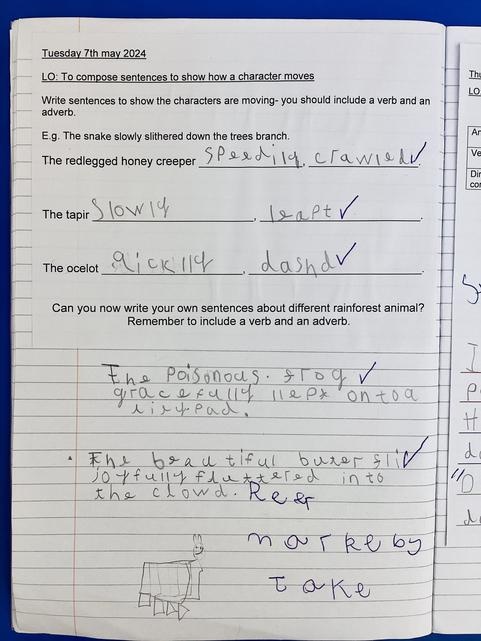 Tuesday 7th may 2024
LO: To compose sentences to show how a character moves
Write sentences to show the characters are moving- you should include a verb and an
adverb.
E.g. The snake slowly slithered down the trees branch.
The redlegged honey creeper speedily, crawled.
The tapir slowly, leapt.
The ocelot qicklly, dashd.
Can you now write your own sentences about different rainforest animal?
Remember to include a verb and an adverb.
The Poisonous. frog
gracefully llept ontoa
lilypad.
The beautiful buterfli
joyfully fluttered into
the clowd.
marke by